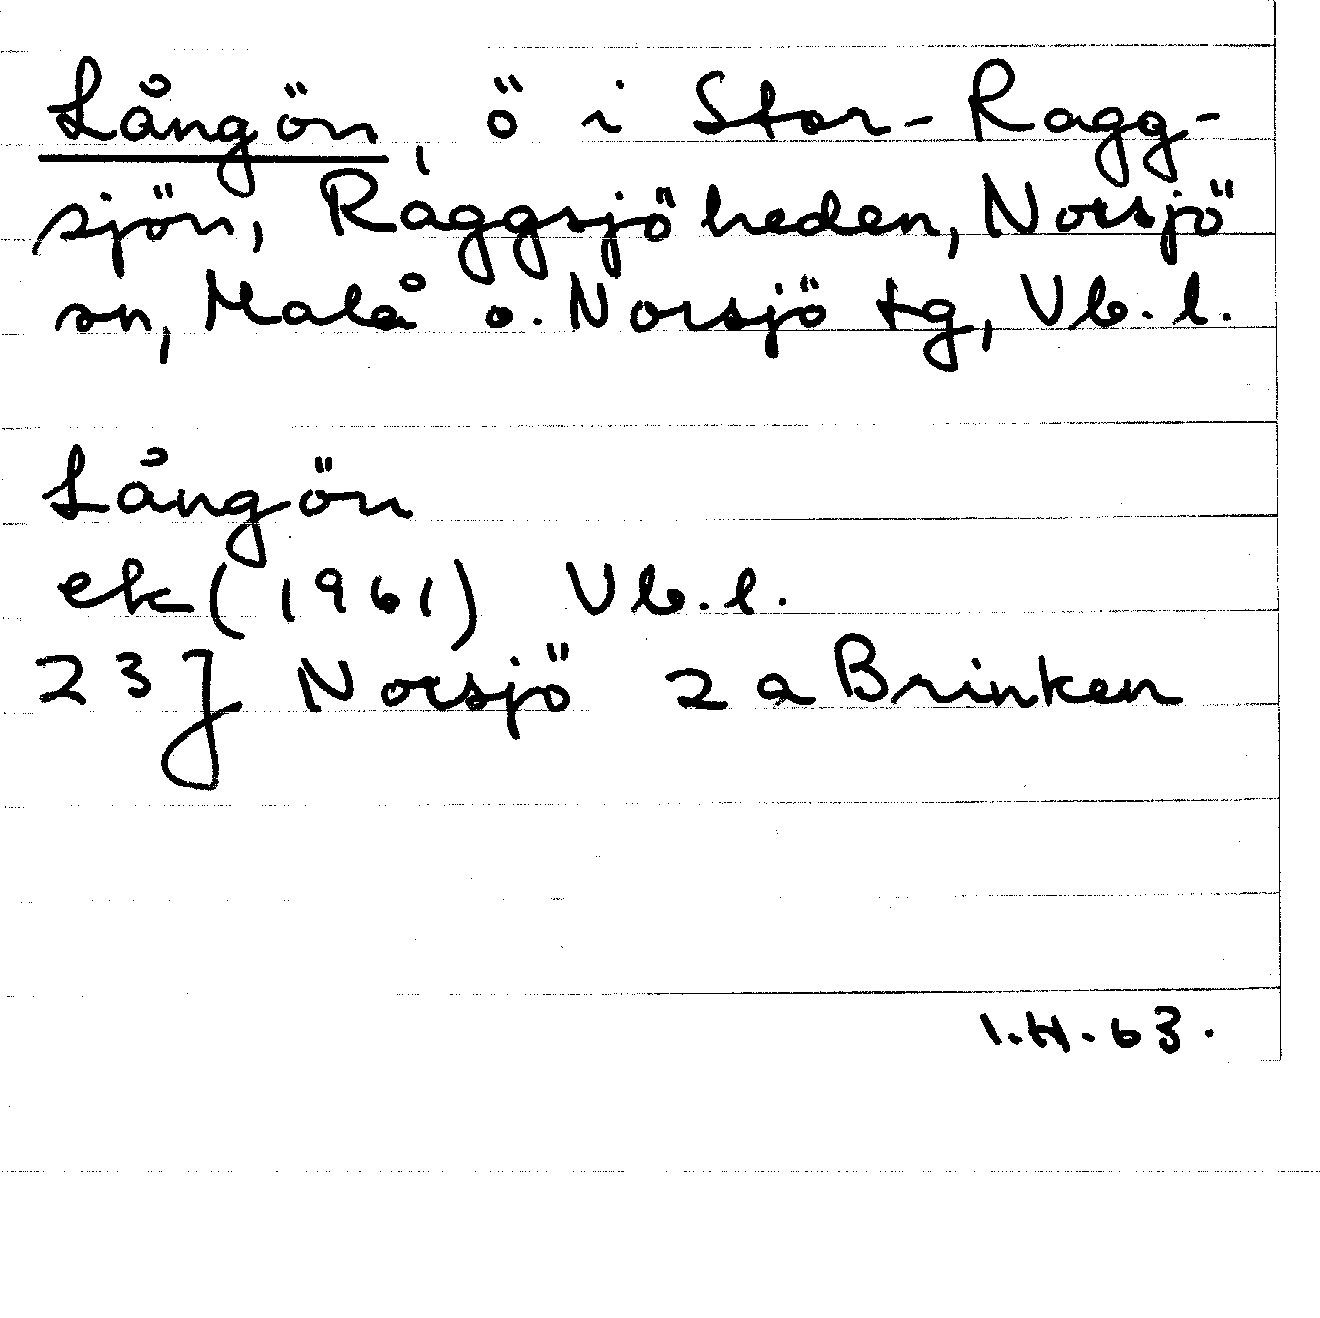 Långön, ö i Stor-Ragg-
sjön, Raggsjöheden, Norsjö
sn, Malå o. Norsjö tg, Vb. l.
Långön
ek (1961) Vb. l.
23J Norsjö 2a Brinken
I.H. 63.